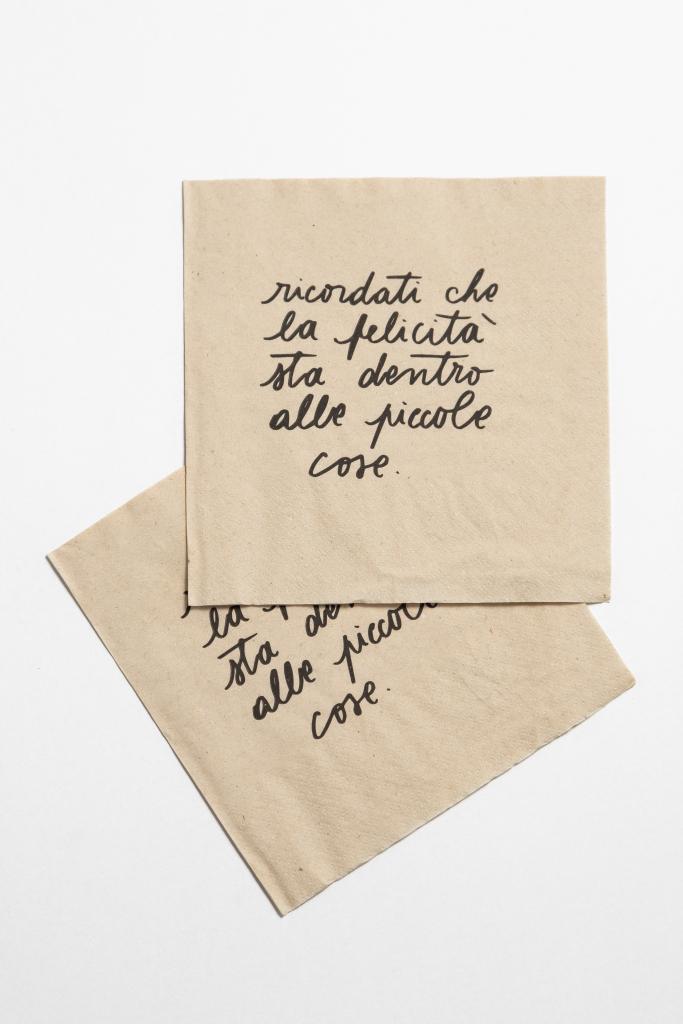 ricordati che
la felicità
sta dentro
alle piccole
cose.
la
sta
alle piccole
cose.